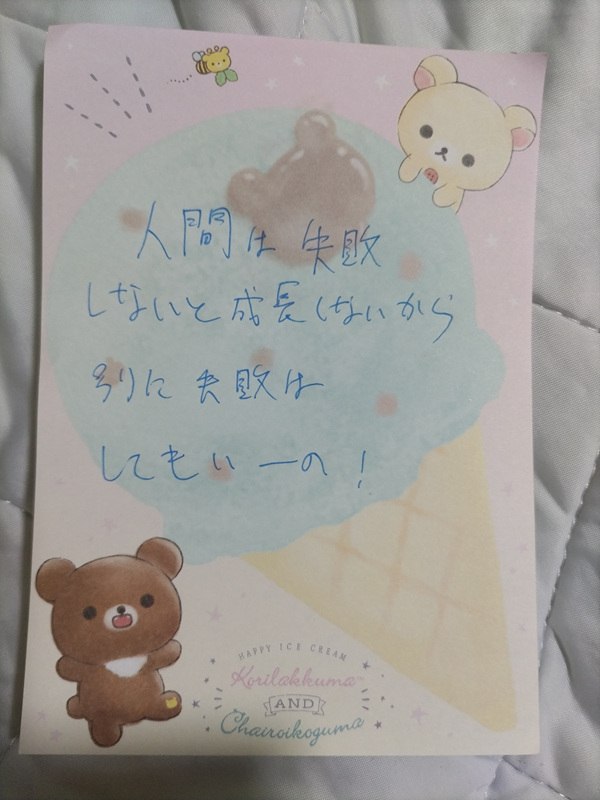 人間は 失敗
しないと成長しないから
別に 失敗は
してもいーの！
HAPPY ICE CREAM
Korilakkuma™
AND
Chairoikoguma